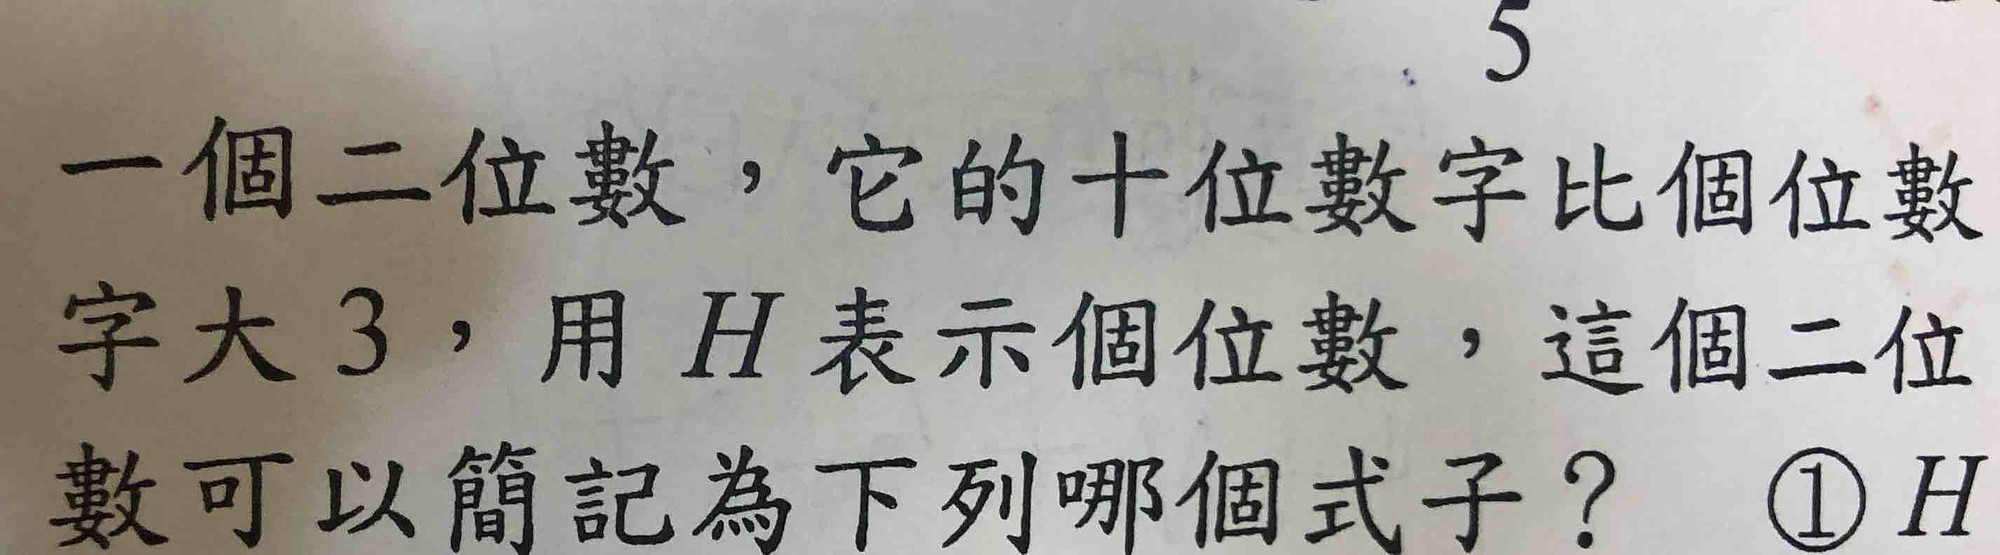 5
一個二位數，它的十位數字比個位數
字大3，用H表示個位數，這個二位
數可以簡記為下列哪個式子？ ①H